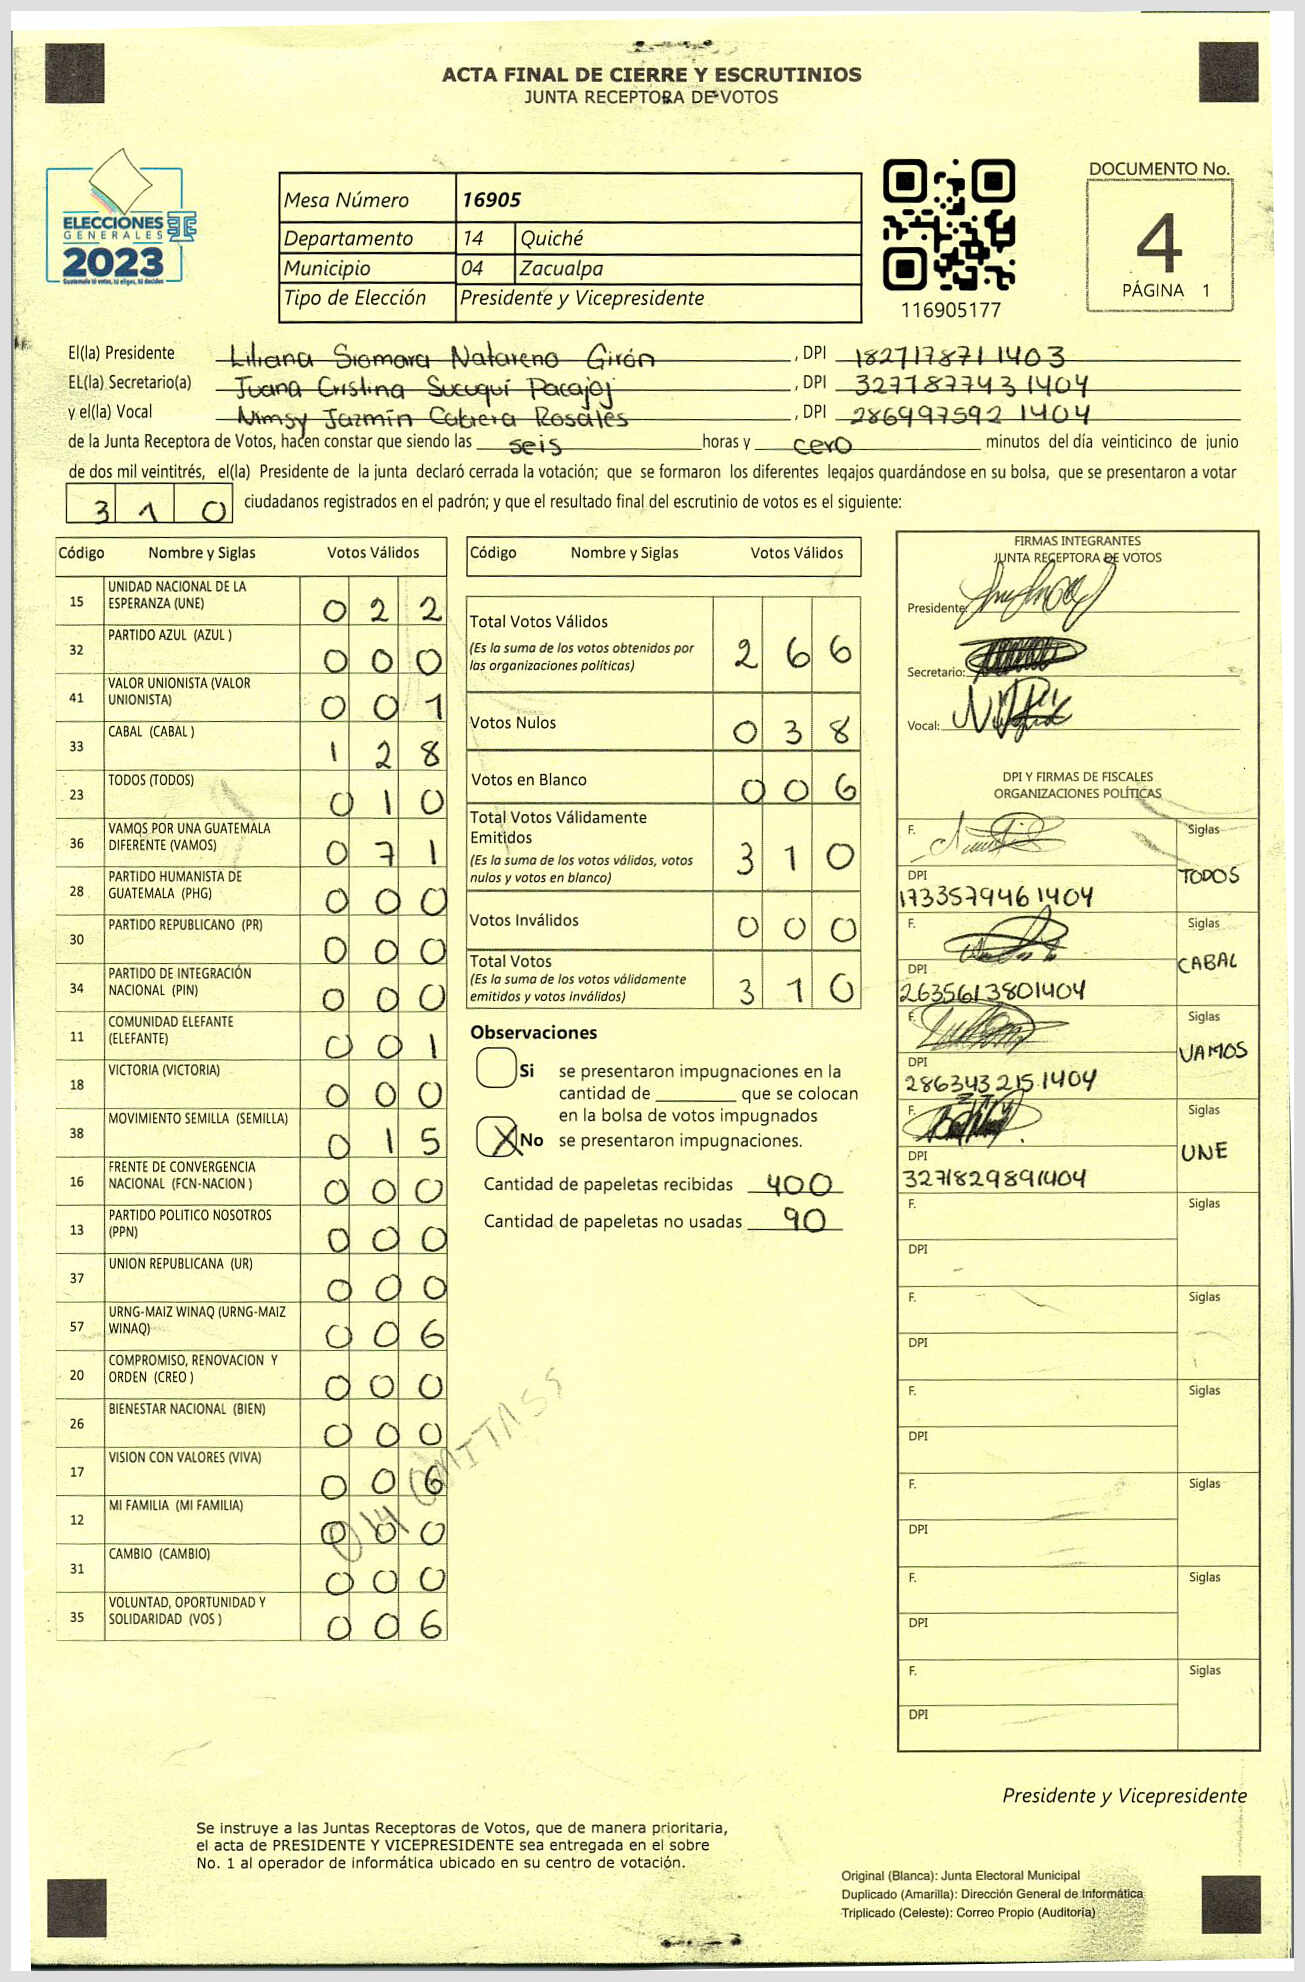 ACTA FINAL DE CIERRE Y ESCRUTINIOS
JUNTA RECEPTORA DE VOTOS
ELECCIONES
GENERALES
2023
Guatemala tú votas, tú eliges, tú decides
Mesa Número 16905
Departamento 14 Quiché
Municipio 04 Zacualpa
Tipo de Elección Presidente y Vicepresidente
116905177
DOCUMENTO No.
4
PÁGINA 1
El(la) Presidente Liliana Siomara Natareno Girón , DPI 182717871 1403
EL(la) Secretario(a) Juana Cristina Sucuquí Pacajoj , DPI 327787743 1404
y el(la) Vocal Nimsy Jazmín Cabrera Rosales , DPI 286997592 1404
de la Junta Receptora de Votos, hacen constar que siendo las seis horas y cero minutos del día veinticinco de junio
de dos mil veintitrés, el(la) Presidente de la junta declaró cerrada la votación; que se formaron los diferentes legajos quardándose en su bolsa, que se presentaron a votar
3 1 0 ciudadanos registrados en el padrón; y que el resultado final del escrutinio de votos es el siguiente:
Código Nombre y Siglas Votos Válidos
15 UNIDAD NACIONAL DE LA ESPERANZA (UNE) 0 2 2
32 PARTIDO AZUL (AZUL ) 0 0 0
41 VALOR UNIONISTA (VALOR UNIONISTA) 0 0 1
33 CABAL (CABAL ) 1 2 8
23 TODOS (TODOS) 0 1 0
36 VAMOS POR UNA GUATEMALA DIFERENTE (VAMOS) 0 7 1
28 PARTIDO HUMANISTA DE GUATEMALA (PHG) 0 0 0
30 PARTIDO REPUBLICANO (PR) 0 0 0
34 PARTIDO DE INTEGRACIÓN NACIONAL (PIN) 0 0 0
11 COMUNIDAD ELEFANTE (ELEFANTE) 0 0 1
18 VICTORIA (VICTORIA) 0 0 0
38 MOVIMIENTO SEMILLA (SEMILLA) 0 1 5
16 FRENTE DE CONVERGENCIA NACIONAL (FCN-NACION ) 0 0 0
13 PARTIDO POLITICO NOSOTROS (PPN) 0 0 0
37 UNION REPUBLICANA (UR) 0 0 0
57 URNG-MAIZ WINAQ (URNG-MAIZ WINAQ) 0 0 6
20 COMPROMISO, RENOVACION Y ORDEN (CREO ) 0 0 0
26 BIENESTAR NACIONAL (BIEN) 0 0 0
17 VISION CON VALORES (VIVA) 0 0 6
12 MI FAMILIA (MI FAMILIA) 0 0 0
31 CAMBIO (CAMBIO) 0 0 0
35 VOLUNTAD, OPORTUNIDAD Y SOLIDARIDAD (VOS ) 0 0 6
Código Nombre y Siglas Votos Válidos
Total Votos Válidos 2 6 6
(Es la suma de los votos obtenidos por
las organizaciones políticas)
Votos Nulos 0 3 8
Votos en Blanco 0 0 6
Total Votos Válidamente
Emitidos 3 1 0
(Es la suma de los votos válidos, votos
nulos y votos en blanco)
Votos Inválidos 0 0 0
Total Votos 3 1 0
(Es la suma de los votos válidamente
emitidos y votos inválidos)
Observaciones
Si se presentaron impugnaciones en la
cantidad de ________ que se colocan
en la bolsa de votos impugnados
X No se presentaron impugnaciones.
Cantidad de papeletas recibidas 400
Cantidad de papeletas no usadas 90
FIRMAS INTEGRANTES
JUNTA RECEPTORA DE VOTOS
Presidente:
Secretario:
Vocal:
DPI Y FIRMAS DE FISCALES
ORGANIZACIONES POLÍTICAS
F. Siglas
DPI TODOS
173357946 1404
F. Siglas
DPI CABAL
2635613801404
F. Siglas
DPI VAMOS
286343 215 1404
F. Siglas
DPI UNE
3271829891404
F. Siglas
DPI
F. Siglas
DPI
F. Siglas
DPI
F. Siglas
DPI
F. Siglas
DPI
F. Siglas
DPI
Presidente y Vicepresidente
Se instruye a las Juntas Receptoras de Votos, que de manera prioritaria,
el acta de PRESIDENTE Y VICEPRESIDENTE sea entregada en el sobre
No. 1 al operador de informática ubicado en su centro de votación.
Original (Blanca): Junta Electoral Municipal
Duplicado (Amarilla): Dirección General de Informática
Triplicado (Celeste): Correo Propio (Auditoria)